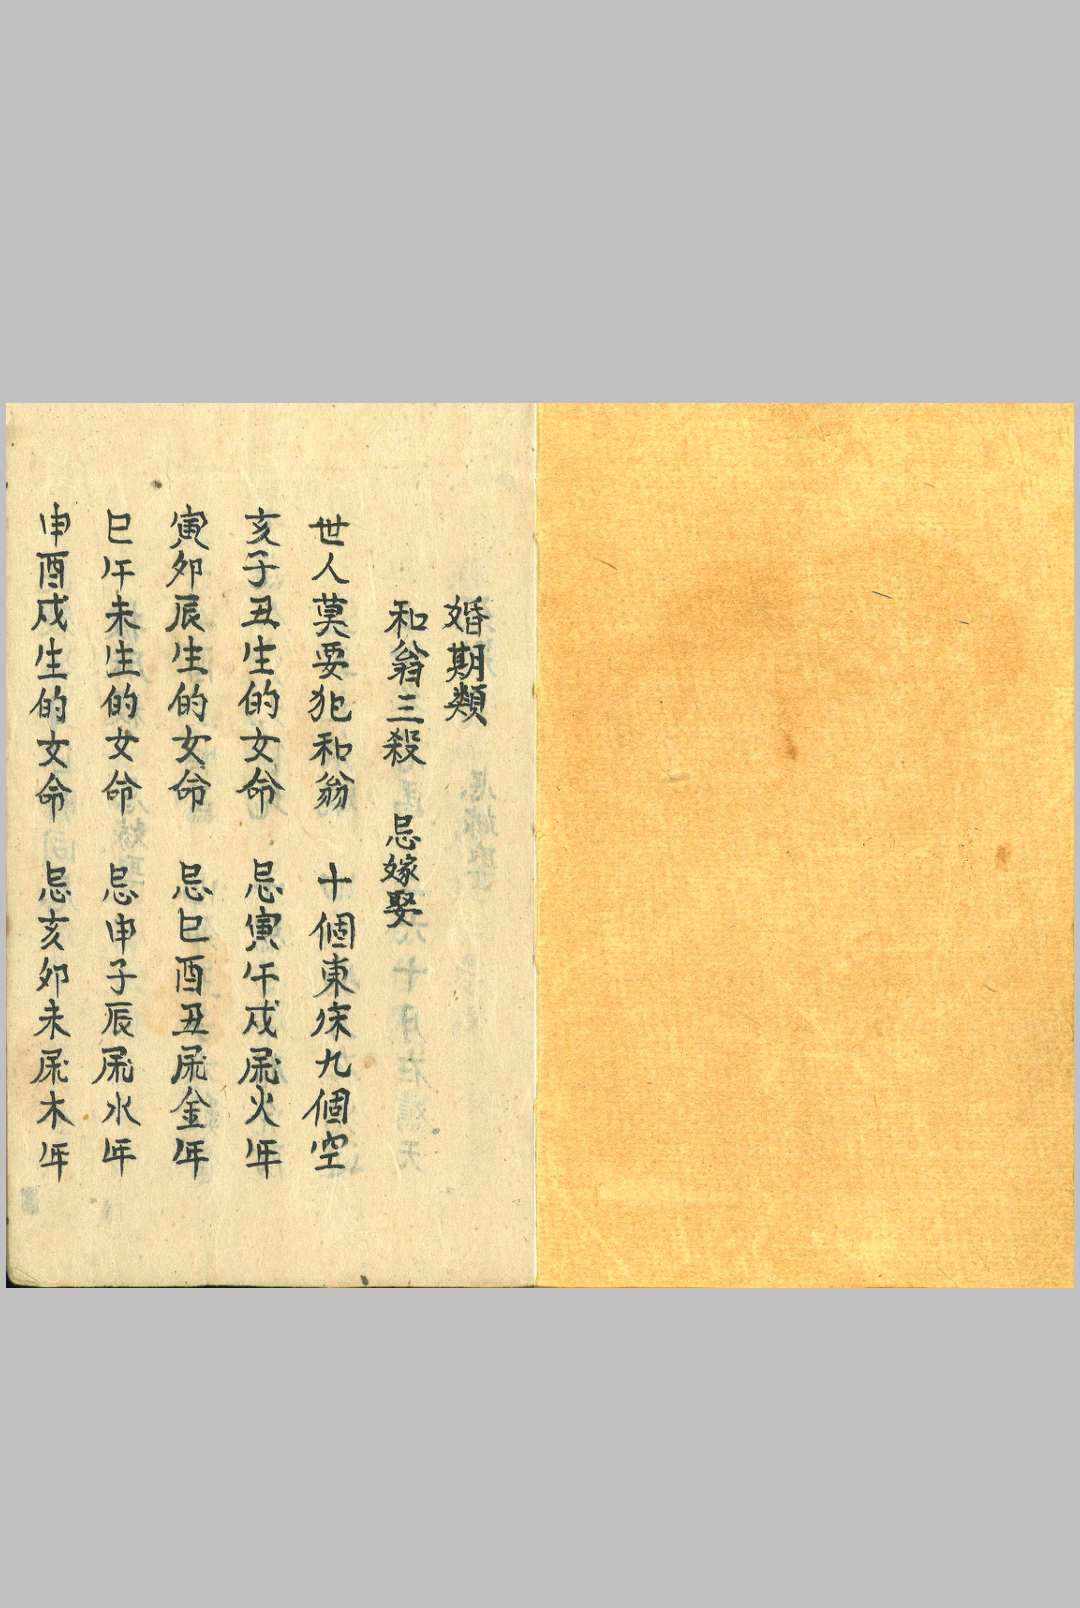 婚期類
和翁三殺 忌嫁娶
世人莫要犯和翁 十個東床九個空
亥子丑生的女命 忌寅午戌属火年
寅卯辰生的女命 忌巳酉丑属金年
巳午未生的女命 忌申子辰属水年
申酉戌生的女命 忌亥卯未属木年